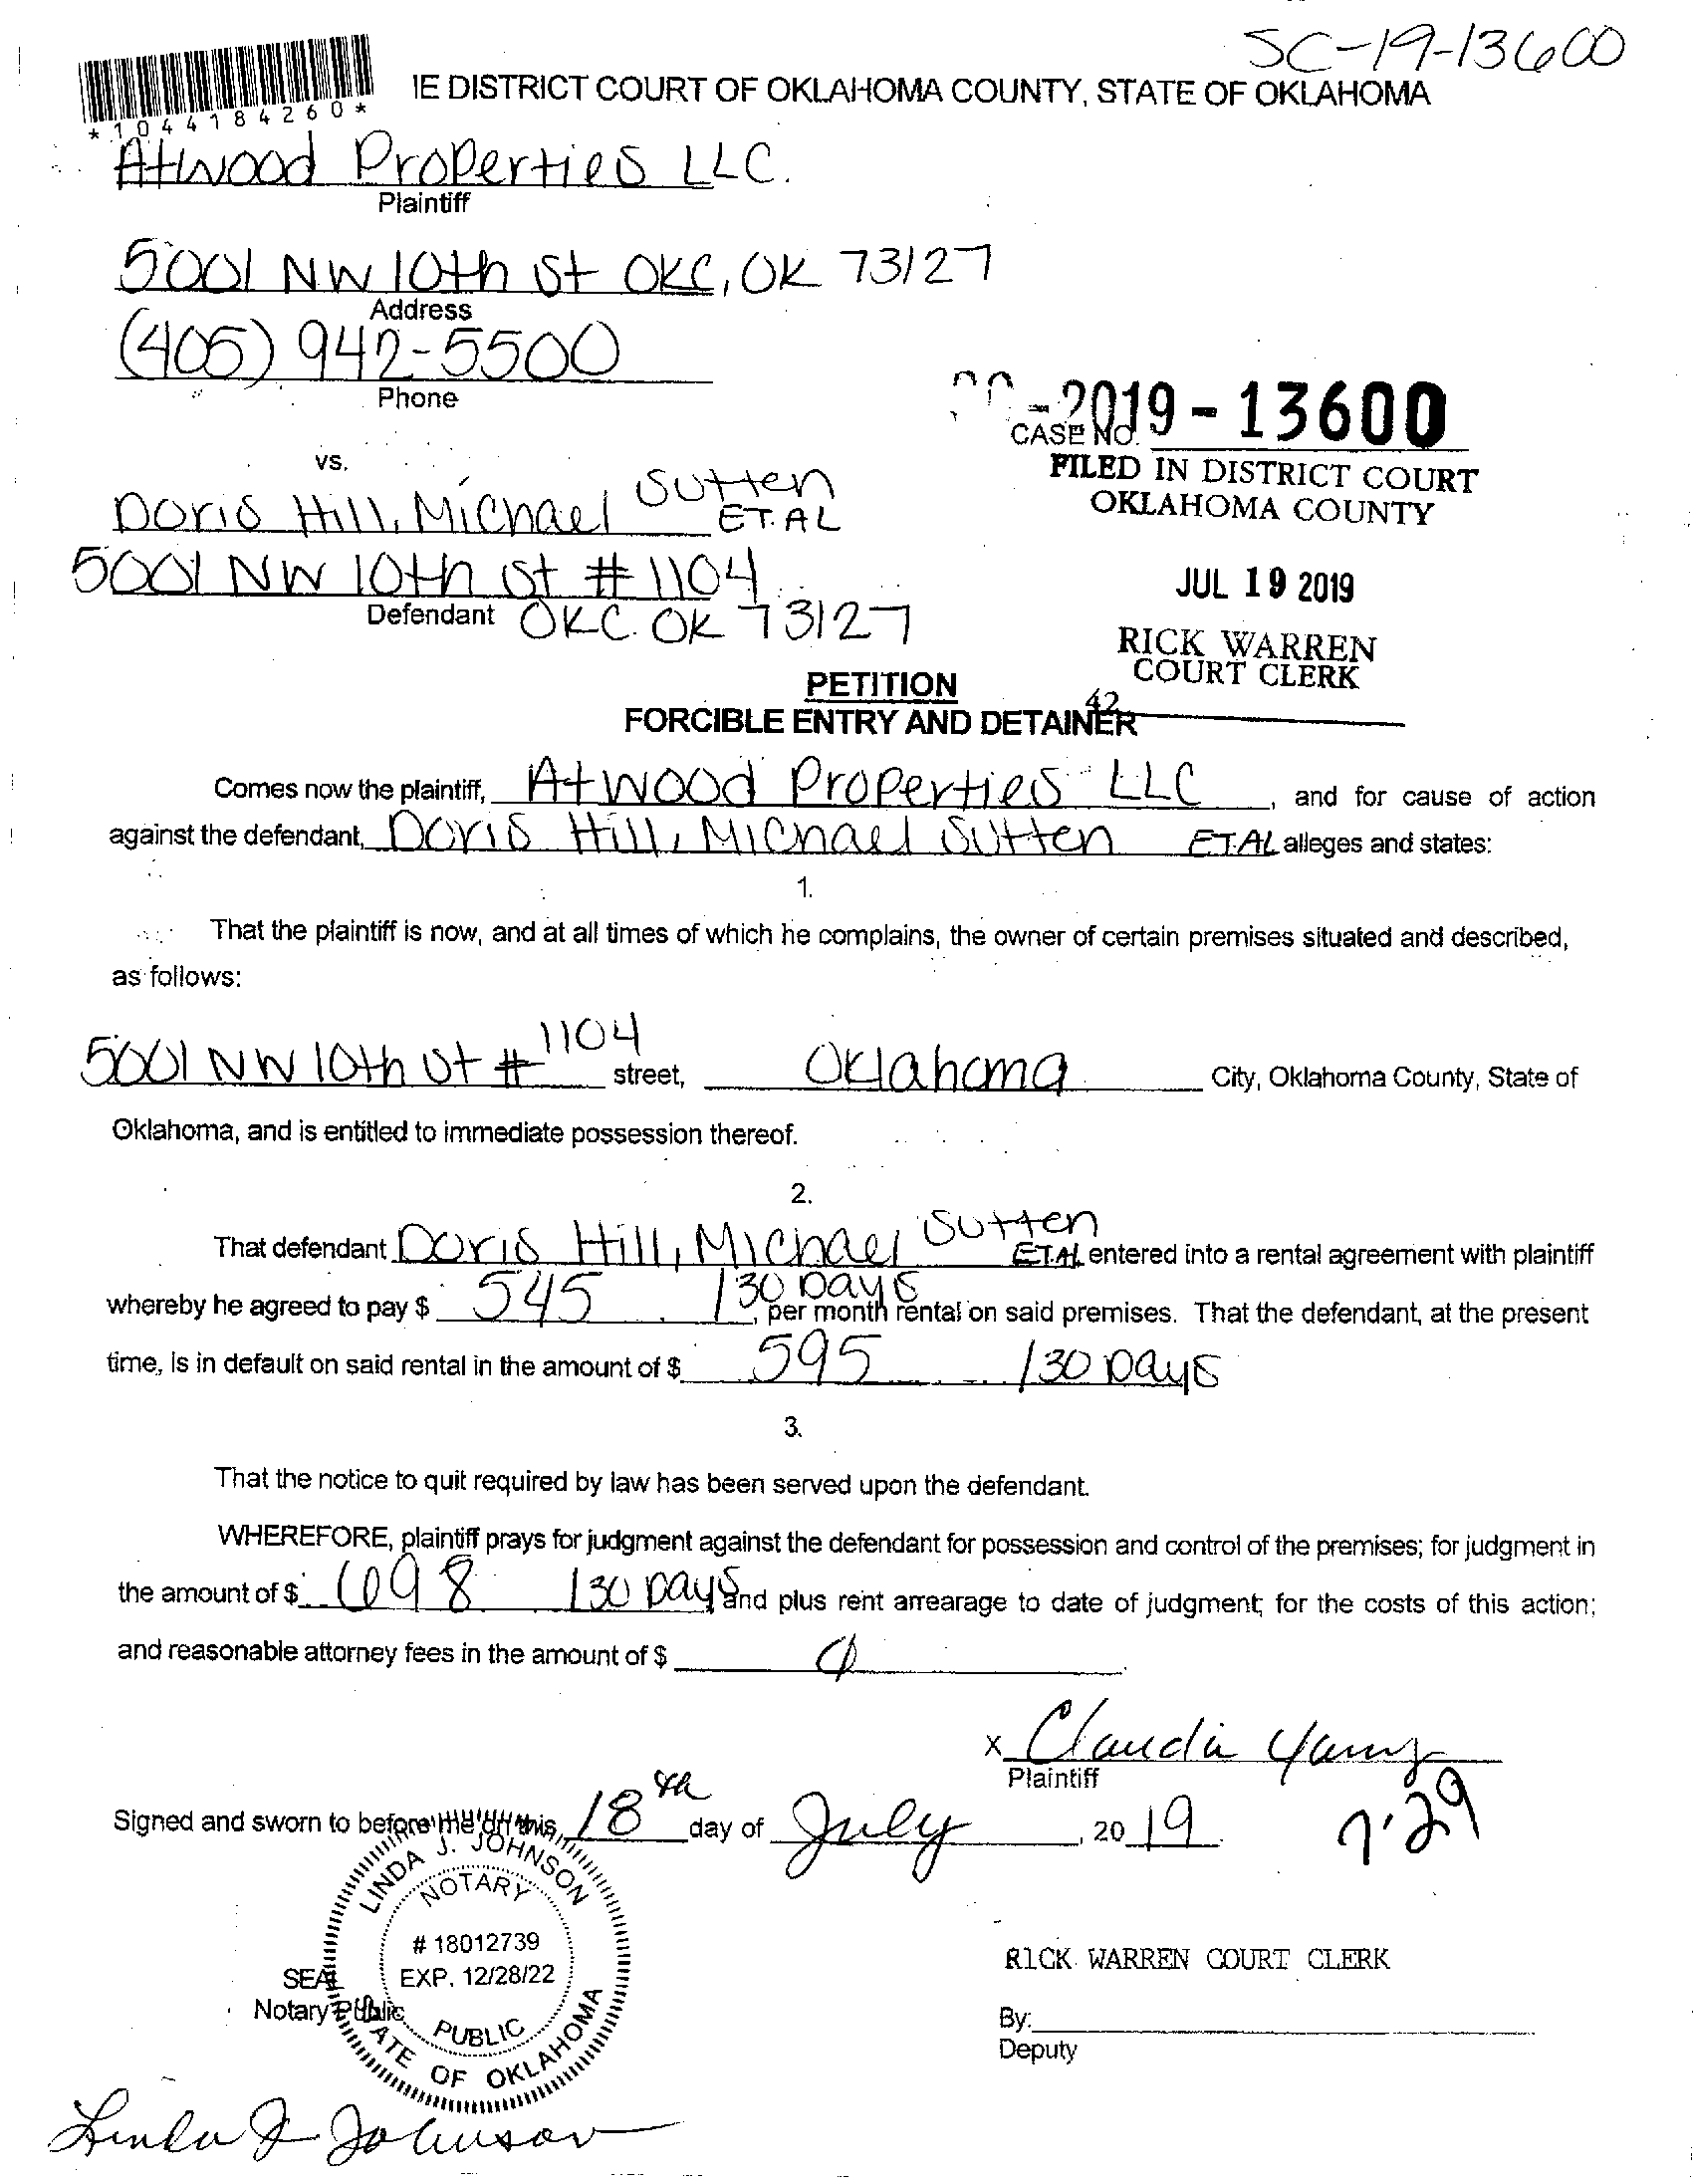 SC-19-13600
IE DISTRICT COURT OF OKLAHOMA COUNTY, STATE OF OKLAHOMA
*1044184260*
Atwood Properties LLC.
Plaintiff
5001 NW 10th St OKC, OK 73127
Address
(405) 942-5500
Phone
-2019-13600
CASE NO.
FILED IN DISTRICT COURT
OKLAHOMA COUNTY
JUL 19 2019
RICK WARREN
COURT CLERK
42
vs.
Doris Hill, Michael Sutten ET.AL
5001 NW 10th St #1104
Defendant OKC. OK 73127
PETITION
FORCIBLE ENTRY AND DETAINER
Comes now the plaintiff, Atwood Properties LLC, and for cause of action
against the defendant, Doris Hill, Michael Sutten ET.AL alleges and states:
1.
That the plaintiff is now, and at all times of which he complains, the owner of certain premises situated and described,
as follows:
5001 NW 10th St #1104 street, Oklahoma City, Oklahoma County, State of
Oklahoma, and is entitled to immediate possession thereof.
2.
That defendant Doris Hill, Michael Sutten ET.AL entered into a rental agreement with plaintiff
whereby he agreed to pay $ 545 /30 Days, per month rental on said premises. That the defendant, at the present
time, is in default on said rental in the amount of $ 595 /30 Days
3.
That the notice to quit required by law has been served upon the defendant.
WHEREFORE, plaintiff prays for judgment against the defendant for possession and control of the premises; for judgment in
the amount of $ 698 /30 Days and plus rent arrearage to date of judgment; for the costs of this action;
and reasonable attorney fees in the amount of $
x Claudia
Plaintiff
Signed and sworn to before me on this 18th day of July, 2019
7-29
LINDA J. JOHNSON
NOTARY
# 18012739
EXP. 12/28/22
PUBLIC
STATE OF OKLAHOMA
SEAL
Notary Public
RICK WARREN COURT CLERK
By:
Deputy
Linda J Johnson